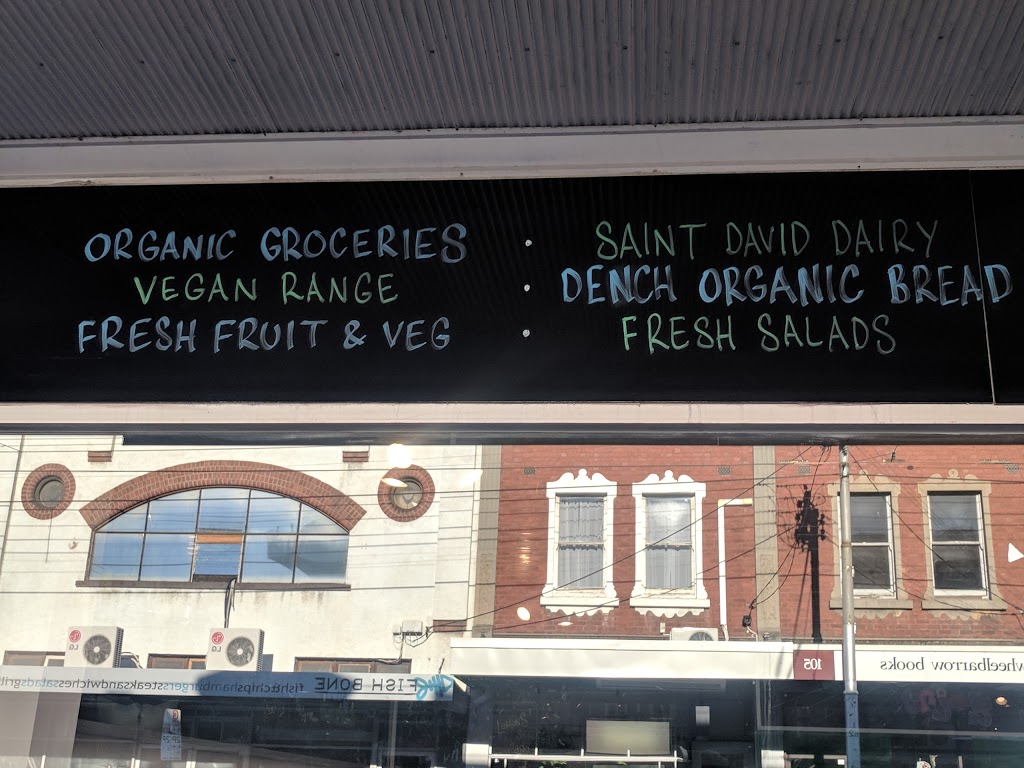 ORGANIC GROCERIES • SAINT DAVID DAIRY
VEGAN RANGE • DENCH ORGANIC BREAD
FRESH FRUIT & VEG • FRESH SALADS
LG LG
105 wheelbarrow books
FISH BONE fish&chipshamburgerssteaksandwichessaladsgrill